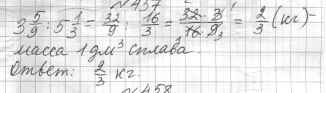 №457
3 5/9 : 5 1/3 = 32/9 : 16/3 = 32·3/16·9 = 2/3 (кг) –
масса 1 дм³ сплава.
Ответ: 2/3 кг.
№458